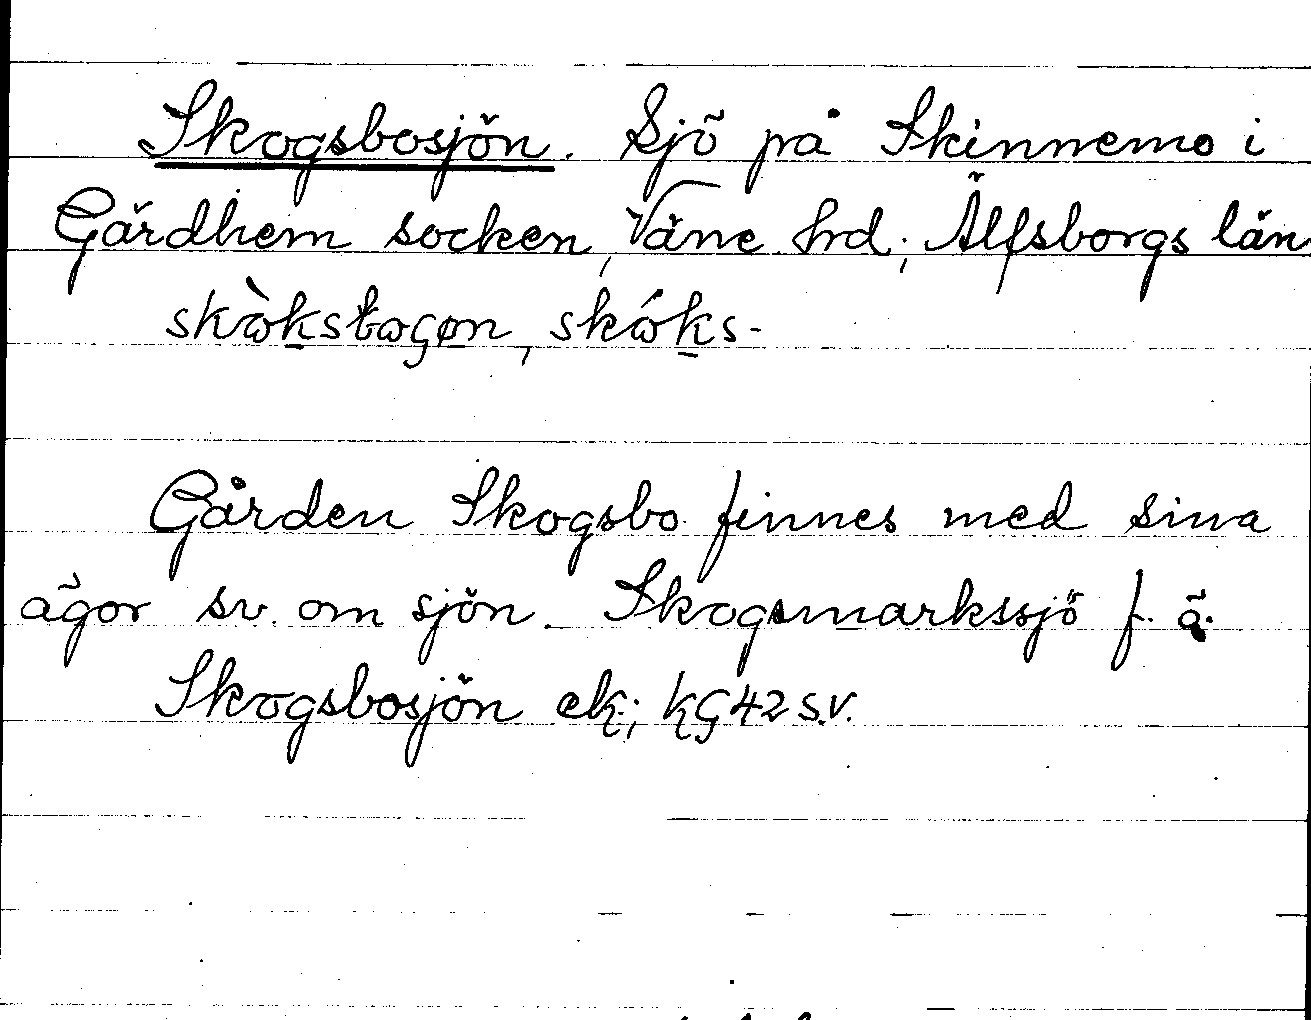 Skogsbosjön. Sjö på Skinnemo i
Gärdhem socken, Väne hrd; Älfsborgs län
skògstagen, skógs-
Gården Skogsbo finnes med sina
ägor sv. om sjön. Skogsmarkssjö f. ä.
Skogsbosjön ek; kG42 s.v.